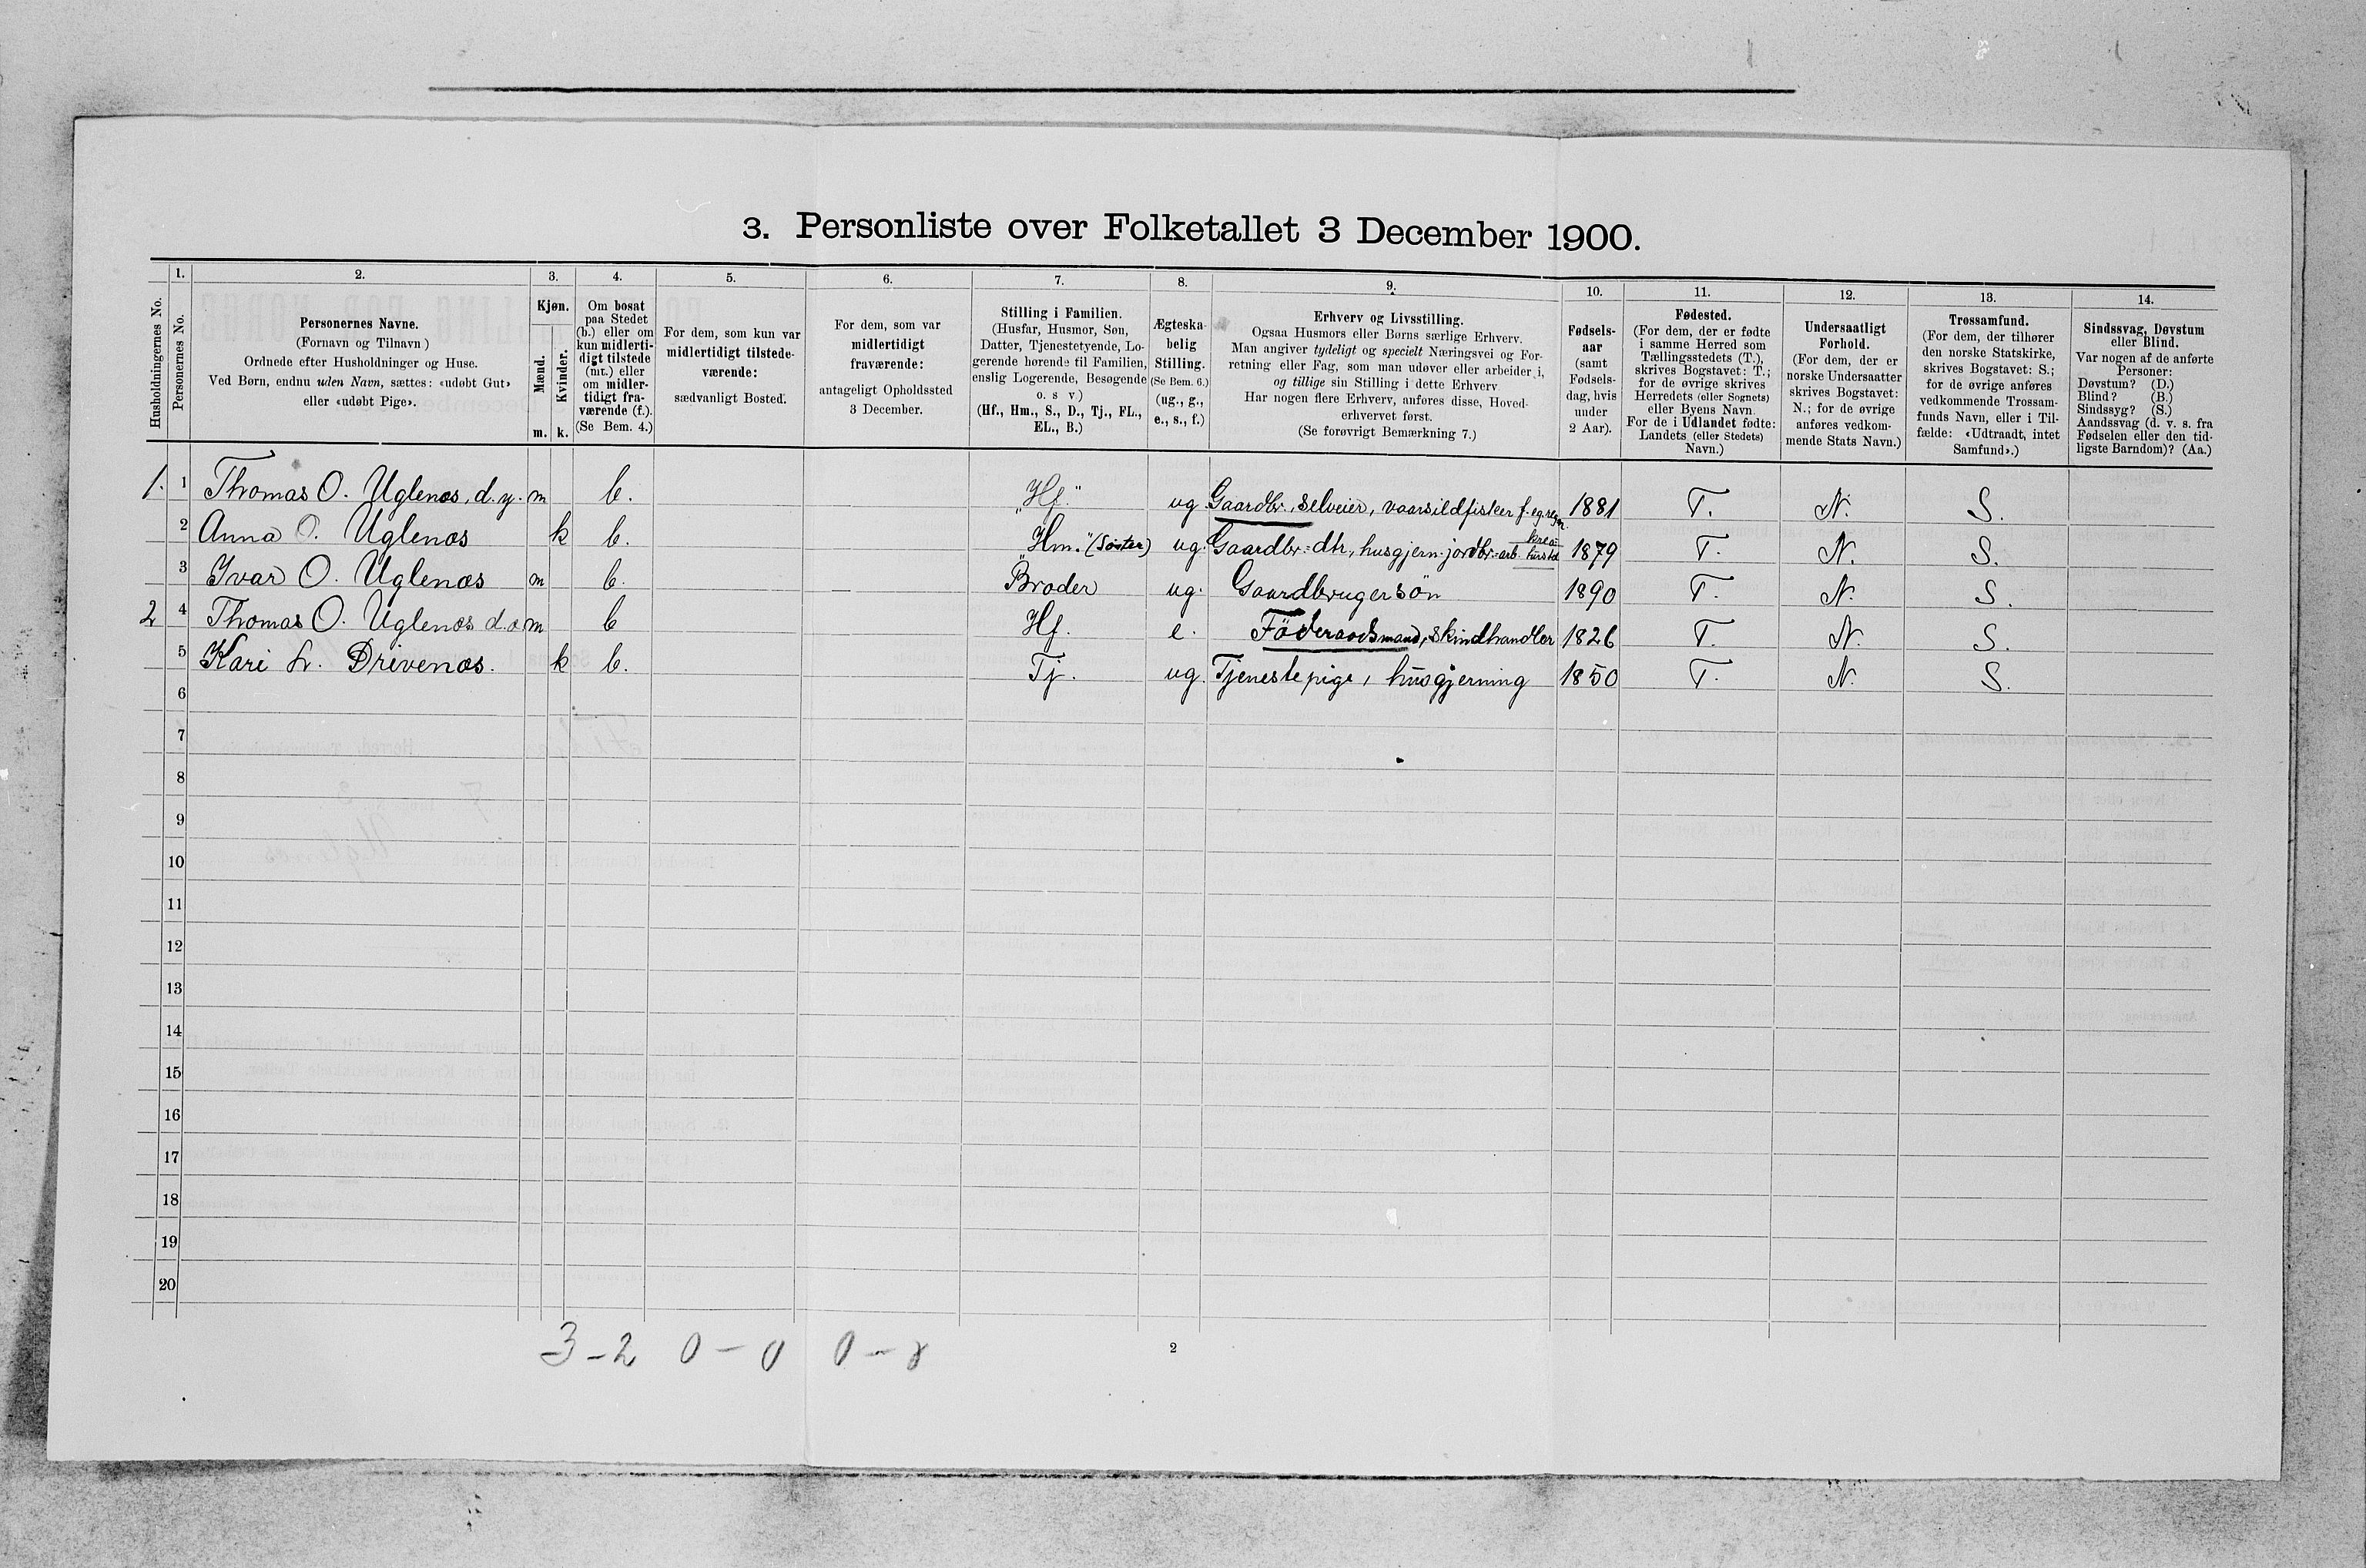 3. Personliste over Folketallet 3 December 1900.
Husholdningernes No.
1.
Personernes No.
2.
Personernes Navne.
(Fornavn og Tilnavn)
Ordnede efter Husholdninger og Huse.
Ved Børn, endnu uden Navn, sættes: «udøbt Gut»
eller «udøbt Pige».
3.
Kjøn.
Mænd.
Kvinder.
m. k.
4.
Om bosat
paa Stedet
(b.) eller om
kun midlerti-
digt tilstede
(mt.) eller
om midler-
tidigt fra-
værende (f.).
(Se Bem. 4.)
5.
For dem, som kun var
midlertidigt tilstede-
værende:
sædvanligt Bosted.
6.
For dem, som var
midlertidigt
fraværende:
antageligt Opholdssted
3 December.
7.
Stilling i Familien.
(Husfar, Husmor, Søn,
Datter, Tjenestetyende, Lo-
gerende hørende til Familien,
enslig Logerende, Besøgende
o. s v)
(Hf., Hm., S., D., Tj., FL.,
EL., B.)
8.
Ægteska-
belig
Stilling.
(Se Bem. 6.)
(ug., g.,
e., s., f.)
9.
Erhverv og Livsstilling.
Ogsaa Husmors eller Børns særlige Erhverv.
Man angiver tydeligt og specielt Næringsvei og For-
retning eller Fag, som man udøver eller arbeider i,
og tillige sin Stilling i dette Erhverv.
Har nogen flere Erhverv, anføres disse, Hoved-
erhvervet først.
(Se forøvrigt Bemærkning 7.)
10.
Fødsels-
aar
(samt
Fødsels-
dag, hvis
under
2 Aar).
11.
Fødested.
(For dem, der er fødte
i samme Herred som
Tællingsstedets (T.),
skrives Bogstavet: T.;
for de øvrige skrives
Herredets (eller Sognets)
eller Byens Navn.
For de i Udlandet fødte:
Landets (eller Stedets)
Navn.)
12.
Undersaatligt
Forhold.
(For dem, der er
norske Undersaatter
skrives Bogstavet:
N.; for de øvrige
anføres vedkom-
mende Stats Navn.)
13.
Trossamfund.
(For dem, der tilhører
den norske Statskirke,
skrives Bogstavet: S.;
for de øvrige anføres
vedkommende Trossam-
funds Navn, eller i Til-
fælde: «Udtraadt, intet
Samfund».)
14.
Sindssvag, Døvstum
eller Blind.
Var nogen af de anførte
Personer:
Døvstum? (D.)
Blind? (B.)
Sindssyg? (S.)
Aandssvag (d. v. s. fra
Fødselen eller den tid-
ligste Barndom)? (Aa.)
1. 1 Thomas O. Uglenæs, d.y. m b. "Hf." ug. Gaardbr., selveier, vaarsildfisker f. eg. regn. 1881 T. N. S.
2 Anna O. Uglenæs k b. "Hm." (Søster) ug. Gaardbr.-dtr, husgjern. jordbr.-arb. 1879 T. N. S.
3 Ivar O. Uglenæs m b. Broder ug. Gaardbrugersön 1890 T. N. S.
2 4 Thomas O. Uglenæs d.æ m b Hf. e. Föderaadsmand, skindhandler 1826 T. N. S.
5 Kari L. Drivenæs. k b. Tj. ug. Tjenestepige, husgjerning 1850 T. N. S.
6
7
8
9
10
11
12
13
14
15
16
17
18
19
20
3-2 0-0 0-0
2